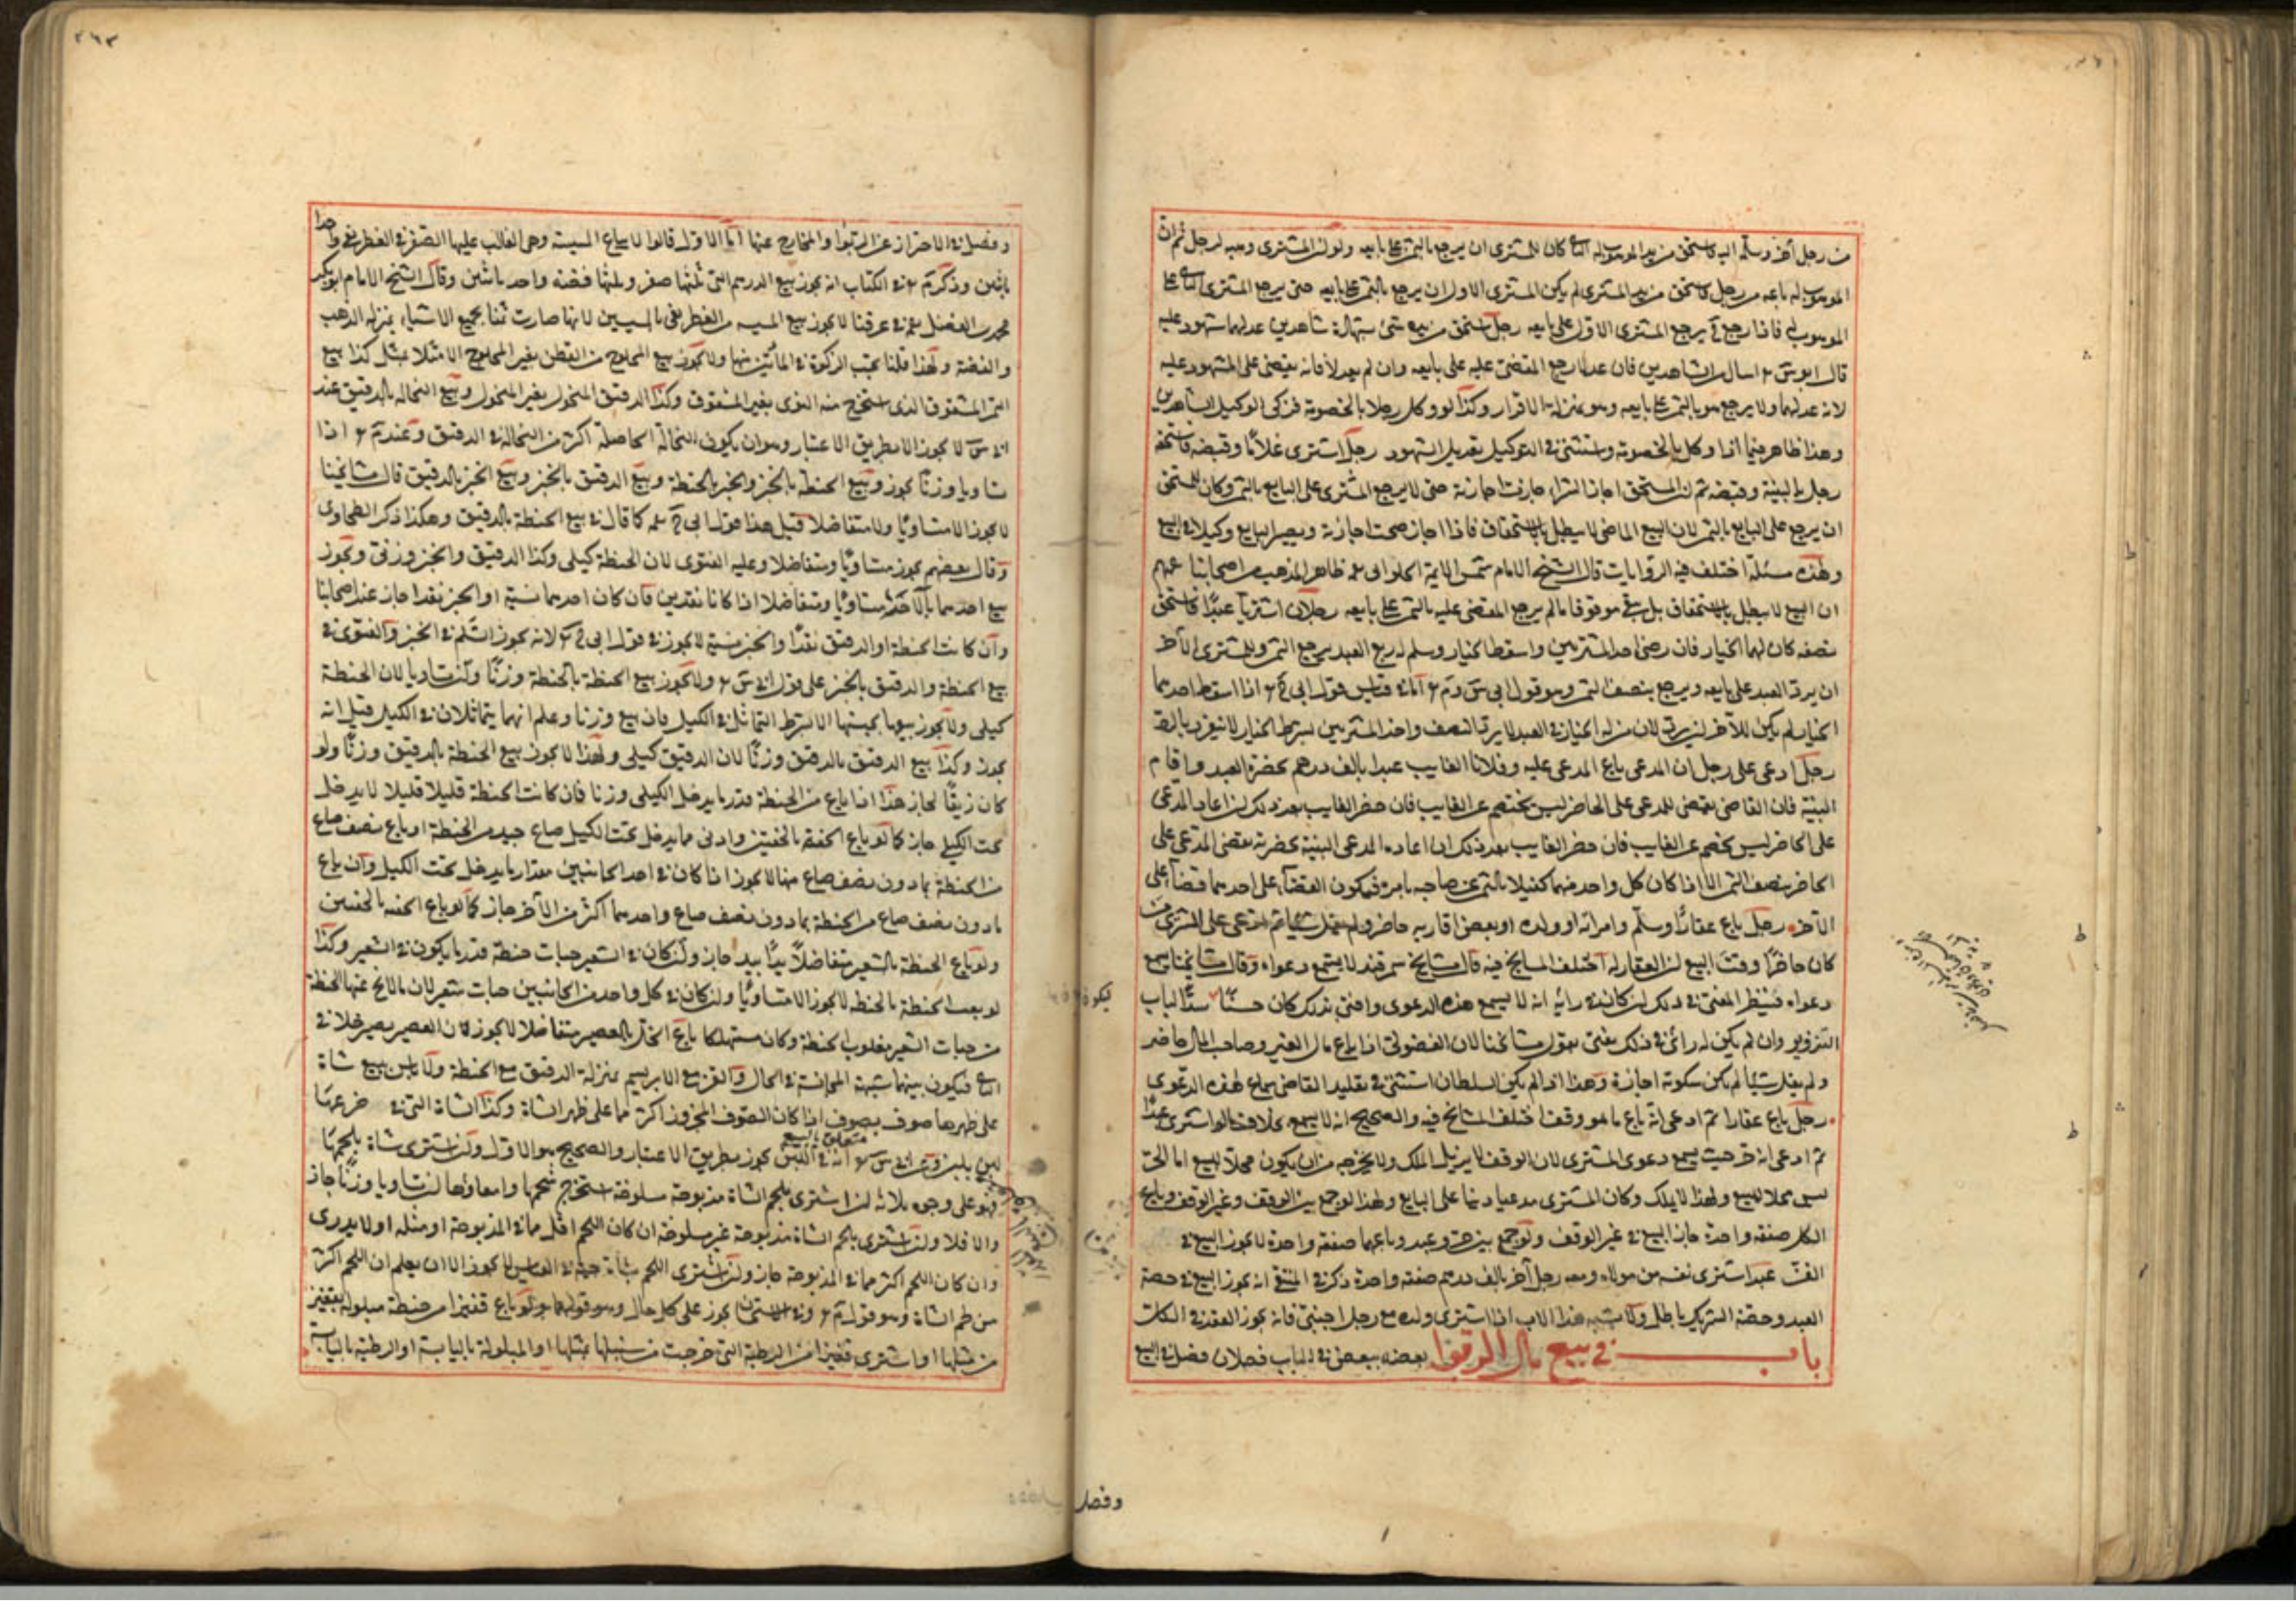 من رجل آخر وسلم اليه فاستحق من يد الموهوب له كان للمشترى ان يرجع بالثمن على بايعه ولو ان المشترى وهبه لرجل ثم ان
الموهوب له باعه من رجل فاستحق من يد المشترى لم يكن للمشترى الاول ان يرجع بالثمن على بايعه حتى يرجع المشترى على
الموهوب له فاذا رجع يرجع المشترى الاول على بايعه رجل استحق من يده شئ بشهادة شاهدين عدلهما المشهود عليه
قال ابو س اسال عن الشاهدين فان عدلا رجع المقضى عليه على بايعه وان لم يعدلا فانه يقضى على المشهود عليه
لانه عدلهما ولا يرجع هو بالثمن على بايعه وهو بمنزلة الاقرار وكذا لو وكل رجلا بالخصومة فزكى الوكيل الشاهدين
وهذا ظاهر فيما اذا وكل بالخصومة واستثنى فى التوكيل تعديل الشهود رجل اشترى غلاما وقبضه فاستحقه
رجل بالبينة وقبضه ثم ان المستحق اجاز الشراء جازت اجازته حتى لا يرجع المشترى على البايع بالثمن وكان للمستحق
ان يرجع على البايع بالثمن لان البيع الماضى لا يبطل بالاستحقاق فاذا اجاز صحت اجازته ويصير البايع وكيلا فى البيع
وهذه مسئلة اختلف فيه الروايات قال الشيخ الامام شمس الايمة الحلوانى ظاهر المذهب من اصحابنا
ان البيع لا يبطل بالاستحقاق بل يبقى موقوفا ما لم يرجع المقضى عليه بالثمن على بايعه رجلان اشتريا عبدا فاستحق
نصفه كان لهما الخيار فان رضى احد المشتريين واسقط الخيار وسلم له ربع العبد يرجع الثمن وللمشترى الآخر
ان يرد العبد على بايعه ويرجع بنصف الثمن وهو قول ابى س وم اما قياس قول ابى ح اذا اسقط احدهما
الخيار لم يكن للآخر ان يرد لان من له الخيار فى العبد لا يرد النصف واحد المشتريين بشرط الخيار لا ينفرد بالرد
رجل ادعى على رجل ان المدعى باع المدعى عليه وفلانا الغايب عبدا بالف درهم بحضرة العبد واقام
البينة فان القاضى يقضى للمدعى على الحاضر ليس بخصم عن الغايب فان حضر الغايب بعد ذلك ان اعاد المدعى
على الحاضر ليس بخصم عن الغايب فان حضر الغايب بعد ذلك ان اعاده المدعى البينة بحضرته يقضى المدعى على
الحاضر بنصف الثمن الا اذا كان كل واحد منهما كفيلا بالثمن عن صاحبه بامره فيكون القضاء على احدهما قضاء على
الآخر رجل باع عقارا وسلم وامراته او ولده او بعض اقاربه حاضر ولم يقل شيئا ثم ادعى على المشترى من
كان حاضرا وقت البيع ان العقار له اختلف المشايخ فيه قال مشايخ سمرقند لا يسمع دعواه وقال مشايخنا يسمع
دعواه فينظر المفتى فى ذلك ان كان فى رايه انه لا يسمع هذه الدعوى وافتى بذلك كان حسنا سدا لباب
التزوير وان لم يكن له راى فى ذلك يفتى بقول مشايخنا لان الفضولى اذا باع مال الغير وصاحب المال حاضر
ولم يقل شيئا لم يكن سكوته اجازة وهذا اذا لم يكن السلطان استثنى فى تقليد القاضى سماع هذه الدعوى
رجل باع عقارا ثم ادعى انه باع ما هو وقف اختلف المشايخ فيه والصحيح انه لا يسمع بخلاف ما لو اشترى عبدا
ثم ادعى انه حر حيث يسمع دعوى المشترى لان الوقف لا يزيل الملك ولا يخرجه من ان يكون محلا للبيع اما الحر
ليس محلا للبيع ولهذا لا يملك وكان المشترى مدعيا دينا على البايع ولهذا لو جمع بين الوقف وغير الوقف وبايع
الكل صفقة واحدة جاز البيع فى غير الوقف ولو جمع بين حر وعبد وباعهما صفقة واحدة لا يجوز البيع فى
القن عبد اشترى نفسه من مولاه ومعه رجل آخر بالف درهم صفقة واحدة ذكر فى المنتقى انه يجوز البيع فى حصة
العبد وحصة الشريك باطل ولا يشبه هذا الاب اذا اشترى ولده مع رجل اجنبى فانه يجوز العقد فى الكل
باب فى بيع مال الربوا بعضه ببعض فى الباب فصلان فصل فى البيع
وفصل
وفصل فى الاحتراز عن الربوا والمخارج عنها اما الاول قالوا لا يباع الستة وهى الغالب عليها الصفر فى الغطريفى واحدا
باثنين وذكر م فى الكتاب انه يجوز بيع الدرهم التى ثلثها صفر وثلثها فضة واحد باثنين وقال الشيخ الامام ابو بكر
محمد بن الفضل فى عرفنا لا يجوز بيع من الغطريفى لانها صارت ثمنا بجميع الاشياء بمنزلة الذهب
والفضة ولهذا قلنا يجب الزكوة فى المأتين منها ولا يجوز بيع المحلوج من القطن بغير المحلوج الا مثلا بمثل كذا بيع
التمر المشقوق الذى استخرج منه النوى بغير المشقوق وكذا الدقيق المنخول بغير المنخول وبيع النخالة بالدقيق عند
ابى س لا يجوز الا بطريق الاعتبار وهو ان يكون النخالة الخالصة اكثر من النخالة فى الدقيق وعند م اذا
تساويا وزنا يجوز وبيع الحنطة بالخبز والخبز بالحنطة وبيع الدقيق بالخبز وبيع الخبز بالدقيق قال مشايخنا
لا يجوز الا متساويا ولا متفاضلا قيل هذا قول ابى ح كما قال فى بيع الحنطة بالدقيق وهكذا ذكر الطحاوى
وقال بعضهم يجوز متساويا ومتفاضلا وعليه الفتوى لان الحنطة كيلى وكذا الدقيق والخبز وزنى ويجوز
بيع احدهما بالآخر متساويا ومتفاضلا اذا كانا نقدين فان كان احدهما نسية او الخبز نقدا جاز عند اصحابنا
وان كانت الحنطة او الدقيق نقدا والخبز نسية لا يجوز فى قول ابى ح لانه يجوز السلم فى الخبز والفتوى فى
بيع الحنطة والدقيق بالخبز على قول ابى س ولا يجوز بيع الحنطة بالحنطة وزنا وان تساويا لان الحنطة
كيلى ولا يجوز بيعها بجنسها الا بشرط التماثل فى الكيل فان بيع وزنا وعلم انهما يتماثلان فى الكيل قيل انه
يجوز وكذا بيع الدقيق بالدقيق وزنا لان الدقيق كيلى ولهذا لا يجوز بيع الحنطة بالدقيق وزنا ولو
كان زيفا لجاز هذا اذا باع من الحنطة قدر ما يدخل الكيلى وزنا فان كانت الحنطة قليلا قليلا لا يدخل
تحت الكيل جاز كما لو باع الحفنة بالحفنتين وادنى ما يدخل تحت الكيل صاع جيد من الحنطة او باع نصف صاع
من الحنطة بما دون نصف صاع منها لا يجوز اذا كان فى احد الجانبين مقدار ما يدخل تحت الكيل وان باع
ما دون نصف صاع من الحنطة بما دون نصف صاع واحدهما اكثر من الآخر جاز كما لو باع الحفنة بالحفنتين
ولو باع الحنطة بالشعير متفاضلا يدا بيد جاز وان كان فى الشعير حبات حنطة قدر ما يكون فى الشعير وكذا
لو بيعت الحنطة بالحنطة لا يجوز الا متساويا وان كان فى كل واحد من الجانبين حبات شعير لان ما لا يخ عنها الحنطة
من حبات الشعير مغلوب الحنطة وكان مستهلكا باع الخل بالعصير متفاضلا لا يجوز لان العصير يصير خلا فى
فيكون بينهما شبهة المجانسة فى الحال والقز مع الابريسم بمنزلة الدقيق مع الحنطة ولا باس ببيع شاة
على ظهرها صوف بصوف اذا كان الصوف المجزوز اكثر مما على ظهر الشاة وكذا الشاة التى فى ضرعها
لبن بلبن وعن ابى س انه فى اللبن يجوز بطريق الاعتبار والصحيح هو الاول ولو اشترى شاة بلحمها
فهو على وجوه ثلاثه ان اشترى بلحم الشاة مذبوحة مسلوخة استخرج شحمها وامعاؤها ان تساويا وزنا جاز
والا فلا ولو اشترى بلحم الشاة مذبوحة غير مسلوخة ان كان اللحم اقل مما فى المذبوحة او مثله او لا يدرى
وان كان اللحم اكثر مما فى المذبوحة جاز ولو اشترى اللحم بشاة حية فى القياس لا يجوز الا ان يعلم ان اللحم اكثر
من لحم الشاة وهو قول م وفى الاستحسان يجوز على كل حال وهو قولهما ولو باع قفيزا من حنطة مبلولة بقفيز
من مثلها او اشترى قفيزا من الرطبة التى خرجت من سنبلها مثلها او المبلولة باليابسة او الرطبة باليابسة